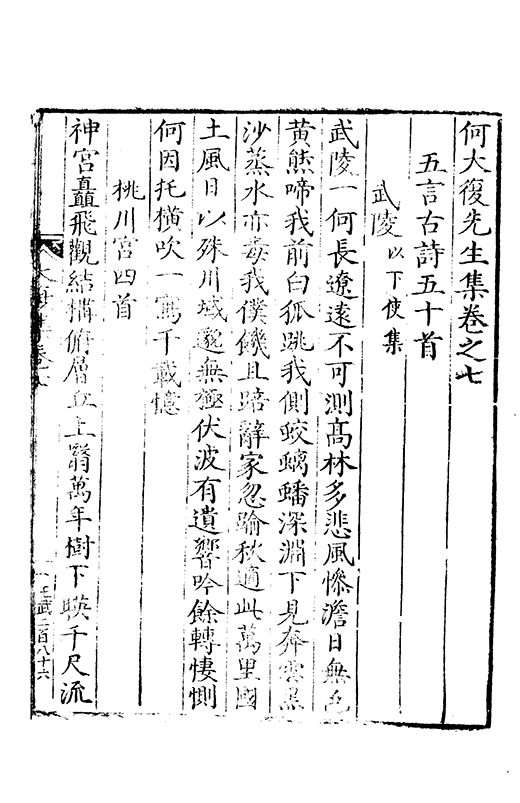 何大復先生集卷之七
五言古詩五十首
武陵以下使集
武陵一何長遼遠不可測高林多悲風慘澹日無色
黄熊啼我前白狐跳我側蛟螭蟠深淵下見奔雲黒
沙蒸水亦毒我僕饑且踣辭家忽踰秋適此萬里國
土風日以殊川域邈無極伏波有遺響吟餘轉悽惻
何因托横吹一寫千載憶
桃川宮四首
神宮矗飛觀結構俯層丘上翳萬年樹下暎千尺流
二百八十六